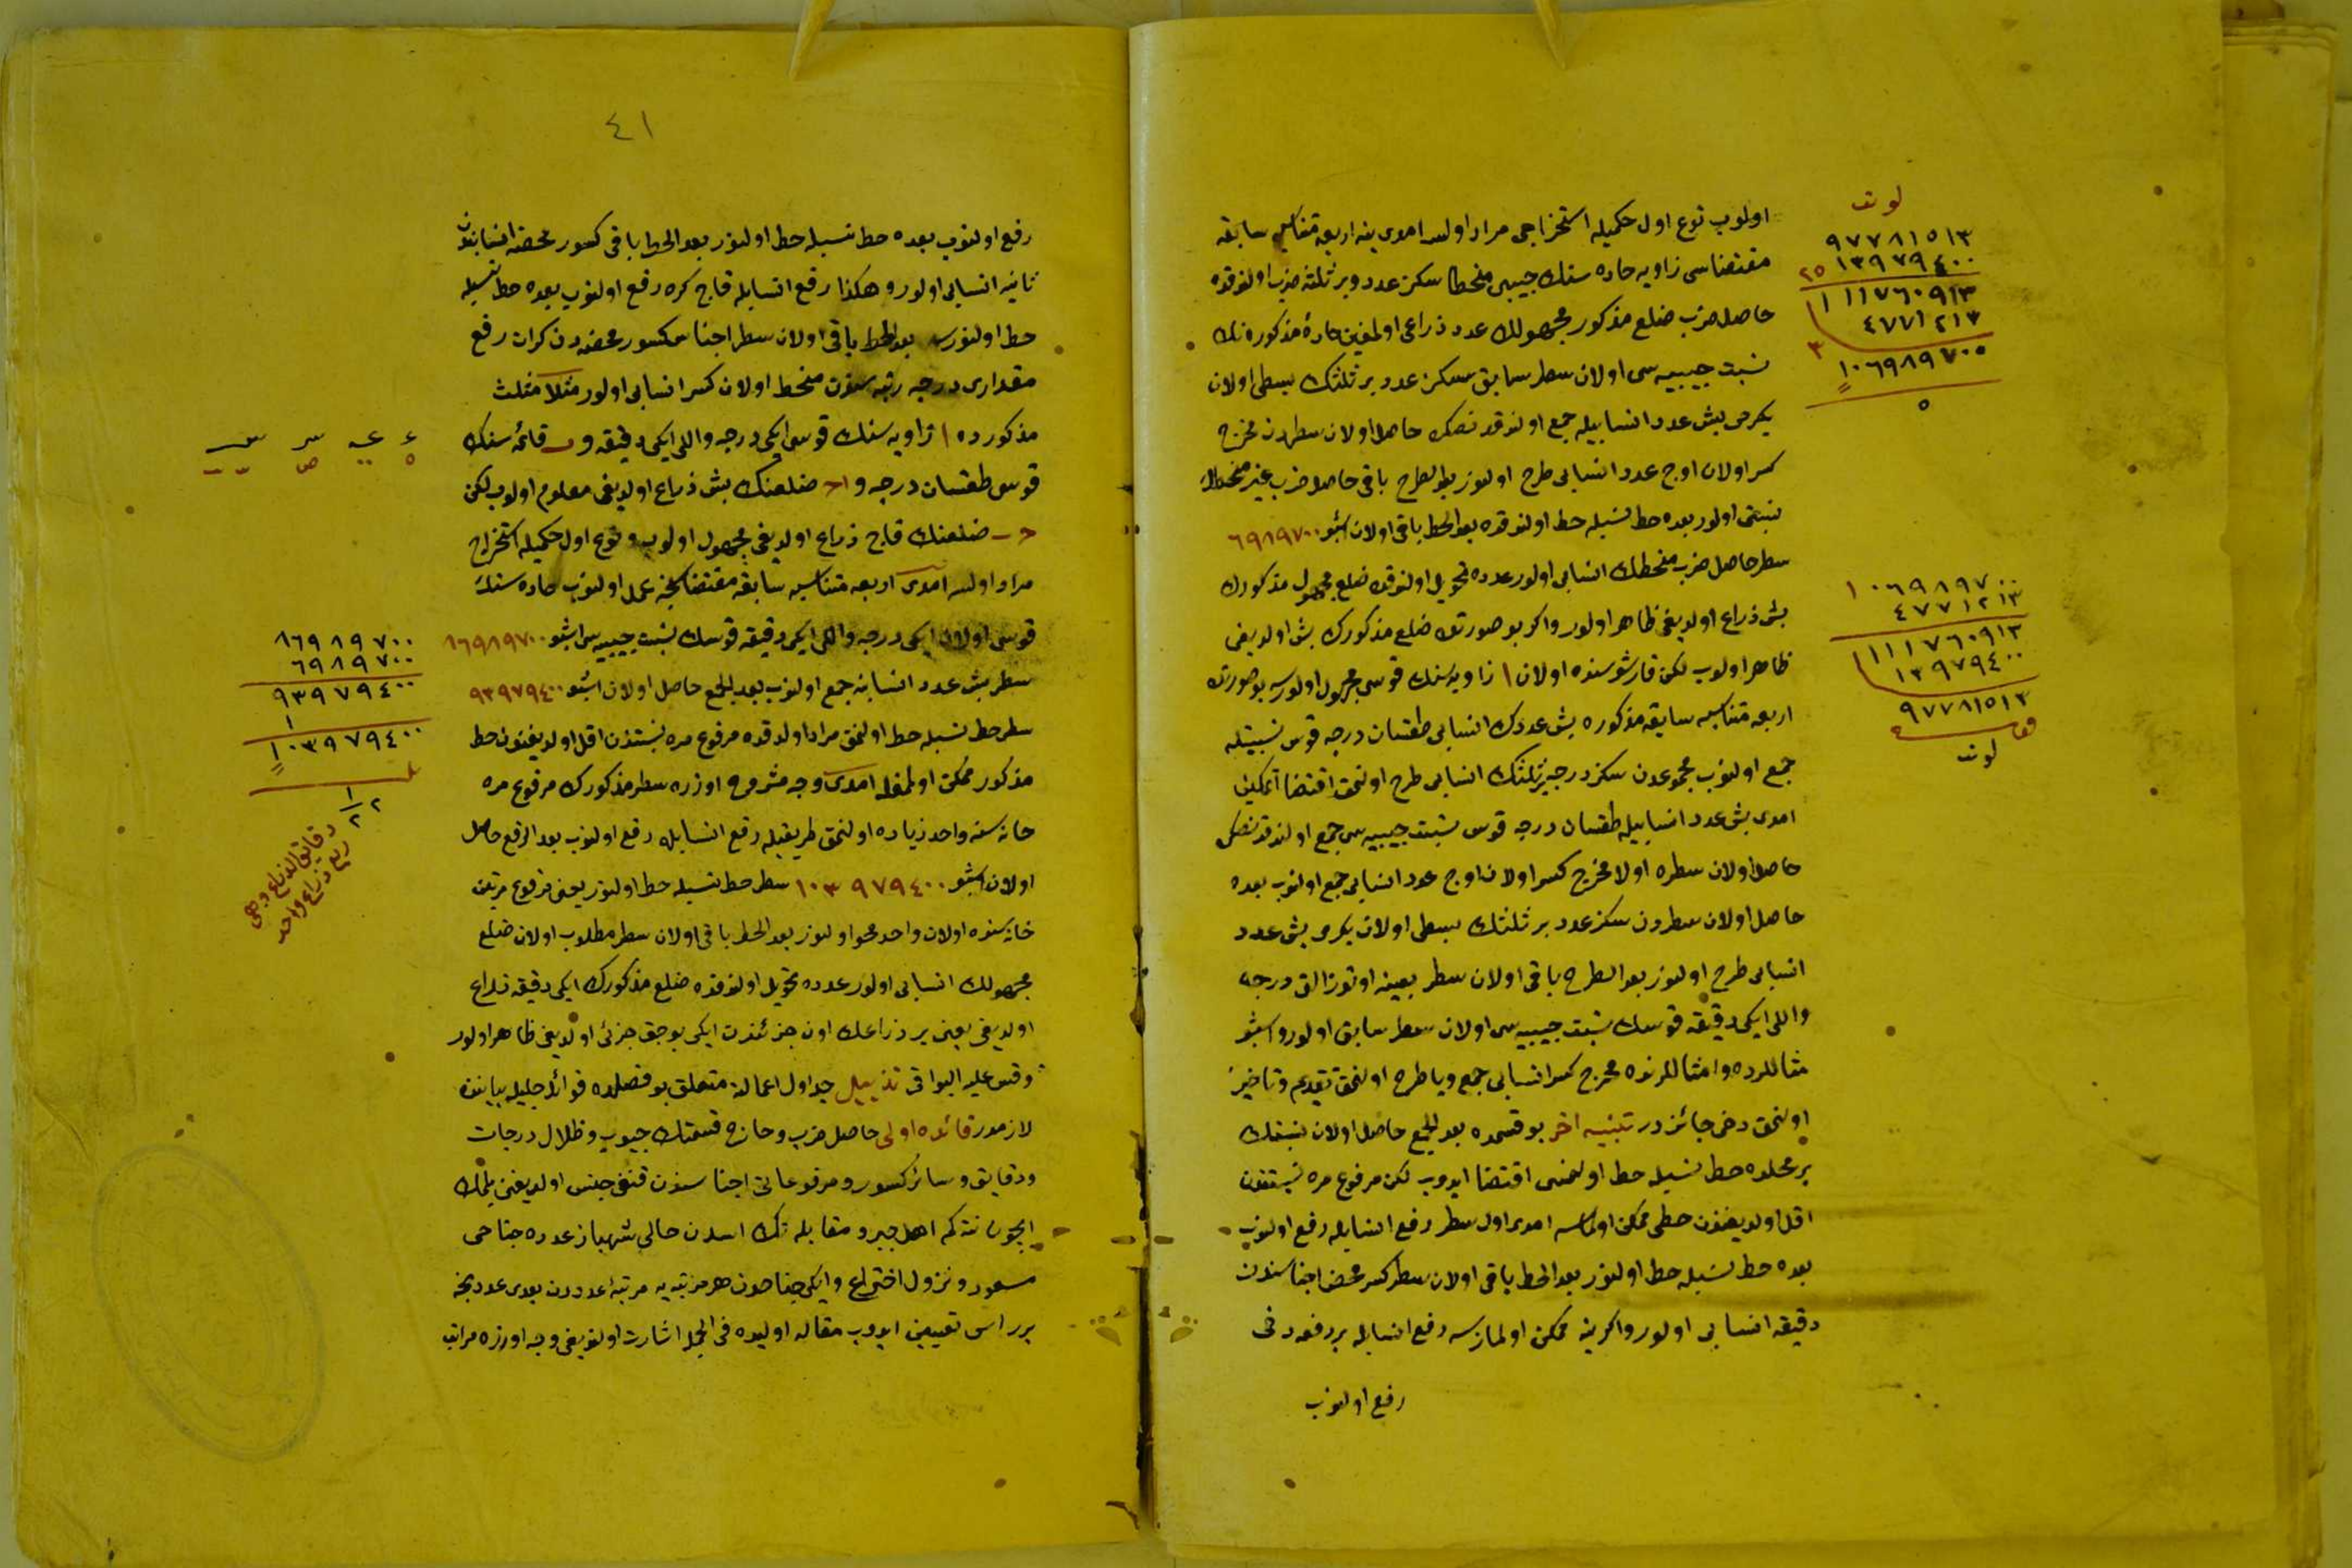 اولوب نوع اول حكميله استخراجى مراد اولسه امدى ينه اربعه متناسبه سابقه
مقتضاسى زاويه حاده سنك جيبى منحطا سكز عدد وبر ثلثه ضرب اولنوقده
حاصل ضرب ضلع مذكور مجهولك عدد ذراعى اولمغين حادۀ مذكوره نك
نسبت جيبيه سى اولان سطر سابق سكز عدد بر ثلثك بسطى اولان
يكرمى بش عدد انسابيله جمع اولنوقدنصكره حاصل اولان سطردن مخرج
كسر اولان اوج عدد انسابى طرح اولنور بعد الطرح باقى حاصل ضرب غير منحطك
نسبتى اولور بعده حط نسبيله حط اولنوقده بعد الحط باقى اولان اشبو ٦٩٨٩٧٠٠
سطر حاصل ضرب منحطك انسابى اولور عدده تحويل اولنوقده ضلع مجهول مذكورك
بش ذراع اولديغى ظاهر اولور واكر بو صورتده ضلع مذكورك بش اولديغى
ظاهر اولوب لكن قارشوسنده اولان ا زاويه سنك قوسى مجهول اولورسه بو صورتده
اربعه متناسبه سابقه مذكوره بش عددك انسابى طقسان درجه قوس نسبتيله
جمع اولنوب مجموعدن سكز درجه بر ثلثك انسابى طرح اولنمق اقتضا اتمكين
امدى بش عدد انسابيله طقسان درجه قوس نسبت جيبيه سى جمع اولندقدنصكره
حاصل اولان سطره اولا مخرج كسر اولان اوج عدد انسابى جمع اولنوب بعده
حاصل اولان سطردن سكز عدد بر ثلثك بسطى اولان يكرمى بش عدد
انسابى طرح اولنور بعد الطرح باقى اولان سطر بعينه اوتوز التى درجه
واللى ايكى دقيقه قوسك نسبت جيبيه سى اولان سطر سابق اولور واشبو
مثاللرده وامثاللرنده مخرج كسر انسابى جمع ويا طرح اولنمق تقديم وتاخير
اولنمق دخى جائزدر تنبيه اخر بو قسمده بعد الجمع حاصل اولان نسبتك
بر محلده حط نسبيله حط اولنمسى اقتضا ايدوب لكن مرفوع مره نسبتندن
اقل اولديغندن حطى ممكن اولماسه امدى اول سطر رفع انسابله رفع اولنوب
بعده حط نسبيله حط اولنور بعد الحط باقى اولان سطر كسر محض اجناسندن
دقيقه انسابى اولور واكر ينه ممكن اولمازسه رفع انسابله بر دفعه دخى
رفع اولنوب
لو نب
٩٧٧٨١٥١٣
١٣٩٧٩٤٠٠ ٢٥
١١١٧٦٠٩١٣
٤٧٧١٢١٣ ٣
١٠٦٩٨٩٧٠٠
٥
١٠٦٩٨٩٧٠٠
٤٧٧١٢١٣
١١١٧٦٠٩١٣
١٣٩٧٩٤٠٠
٩٧٧٨١٥١٣
لو نب
٤١
رفع اولنوب بعده حط نسبيله حط اولنور بعد الحط باقى كسور محضه انسابندن
ثانيه انسابى اولور وهكذا رفع انسابله قاج كره رفع اولنوب بعده حط نسبيله
حط اولنورسه بعد الحط باقى اولان سطر اجناس كسور محضه دن كرات رفع
مقدارى درجه رتبه سندن منحط اولان كسر انسابى اولور مثلا مثلث
مذكورده ا زاويه سنك قوسى ايكى درجه واللى ايكى دقيقه و ب قائمه سنك
قوسى طقسان درجه و اح ضلعنك بش ذراع اولديغى معلوم اولوب لكن
ح ب ضلعنك قاج ذراع اولديغى مجهول اولوب ونوع اول حكميله استخراج
مراد اولسه امدى اربعه متناسبه سابقه مقتضاسنجه عمل اولنوب حاده سنك
قوسى اولان ايكى درجه واللى ايكى دقيقه قوسك نسبت جيبيه سى اشبو ٨٦٩٨٩٧٠٠
سطر بش عدد انسابنه جمع اولنوب بعد الجمع حاصل اولان اشبو ٩٣٩٧٩٤٠٠
سطر حط نسبيله حط اولنمق مراد اولدقده مرفوع مره نسبتندن اقل اولديغندن حط
مذكور ممكن اولمغله امدى وجه مشروح اوزره سطر مذكورك مرفوع مره
خانه سنه واحد زياده اولنمق طريقيله رفع انسابله رفع اولنوب بعد الرفع حاصل
اولان اشبو ١٠٣٩٧٩٤٠٠ سطر حط نسبيله حط اولنور يعنى مرفوع مرتين
خانه سنده اولان واحد محو اولنور بعد الحط باقى اولان سطر مطلوب اولان ضلع
مجهولك انسابى اولور عدده تحويل اولنوقده ضلع مذكورك ايكى دقيقه ذراع
اولديغى يعنى بر ذراعك اون جزئندن ايكى بوجق جزئى اولديغى ظاهر اولور
وقس عليه البواقى تذييل جداول اعمالنه متعلق بو فصلده فوائد جليله بياننده
لازمدر فائده اولى حاصل ضرب وخارج قسمتك جيوب وظلال درجات
ودقايق وسائر كسور ومرفوعاتى اجناسندن قنغى جنس اولديغنى بلمك
ايجون نته كم اهل جبر ومقابله نك اسدن حالى شهباز عدده جناحى
صعود ونزول اختراع وايكى جناحدن هر مرتبه يه مرتبۀ عدددن بعدى عددنجه
برر اس تعيين ايدوب مقاله اوليده فى الجمله اشارت اولنديغى وجه اوزره مراتب
٨٦٩٨٩٧٠٠
٦٩٨٩٧٠٠
٩٣٩٧٩٤٠٠
١
١٠٣٩٧٩٤٠٠
٢ ١/٢
دقايق الذراع وهى
ربع ذراع واحد